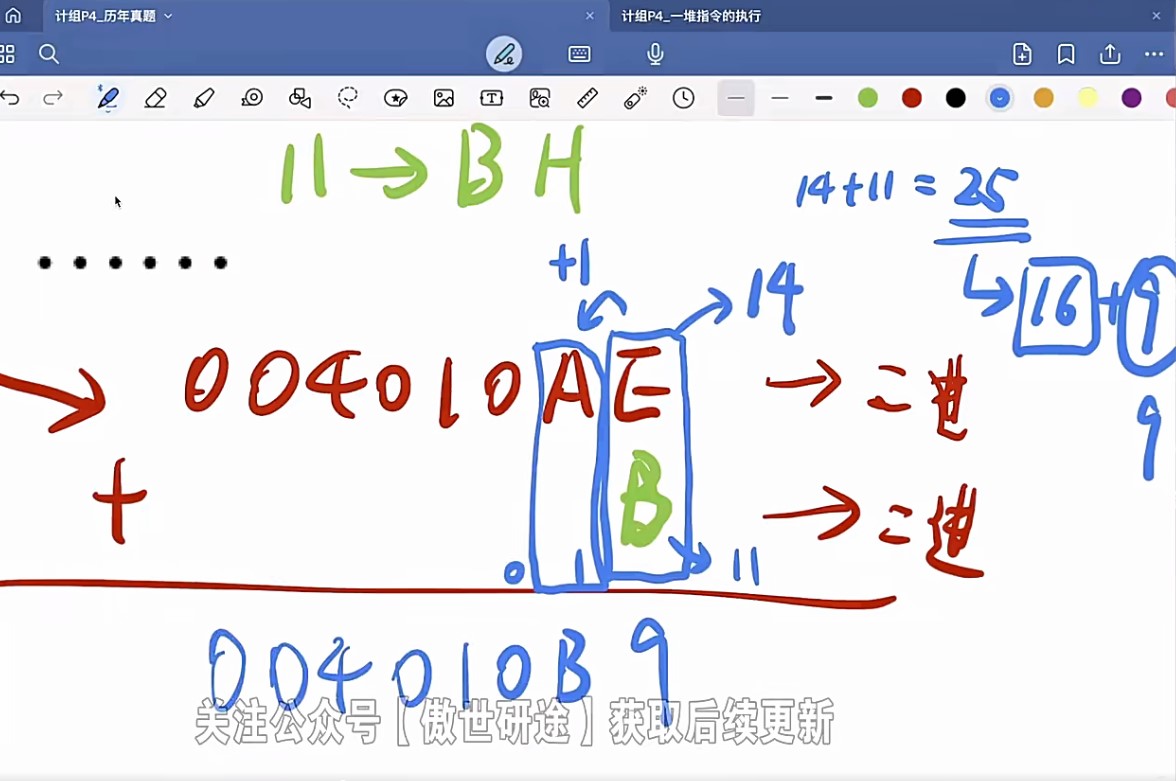 计组P4_历年真题
计组P4_一堆指令的执行
11→BH
14+11=25
↳16+9
+1
→14
004010AE →二进
9
+ B →二进
0 1 →11
004010B9
关注公众号【傲世研途】获取后续更新